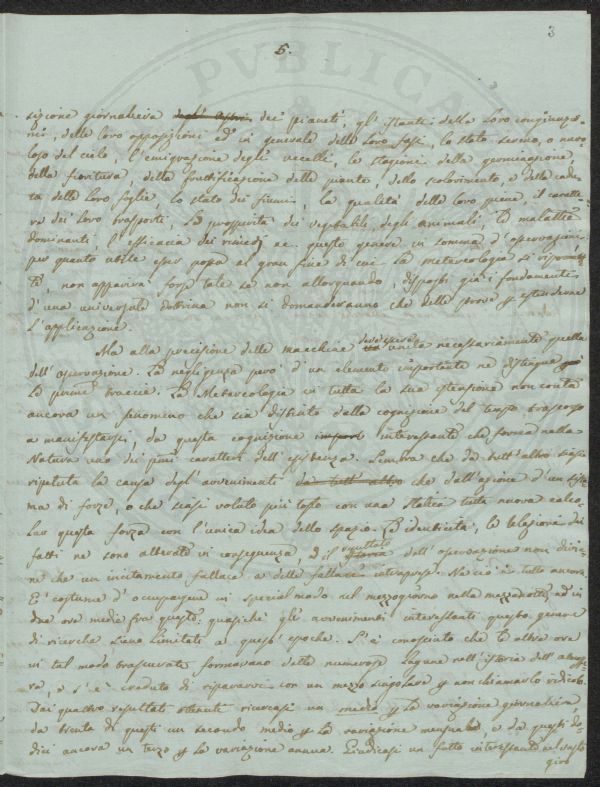 3
PVBLICA
5.
sizione giornaliera degl' astri dei pianeti, gl' istanti della loro congiunzio-
ni, delle loro opposizioni ed in generale delle loro fasi, lo stato sereno, o nuvo-
loso del cielo, l'emigrazione degli uccelli, la stagione della germinazione,
della fioritura, della fruttificazione delle piante, dello scolorimento, e della cadu-
ta delle loro foglie, lo stato dei fiumi, la qualità delle loro piene, il caratte-
re dei loro trasporti, la prosperità dei vegetabili, degli animali, le malattie
dominanti, l'efficacia dei rimedj ec. questo genere in somma d'osservazioni
per quanto utile esser possa al gran fine di cui la meteorologia si
, non apparirà forse tale se non allorquando, disposti già i fondamenti
d'una universale dottrina non si domanderanno che delle prove p estenderne
l'applicazione.
Ma alla precisione delle macchine deve essere unita necessariamente quella
dell'osservazione. La negligenza però d'un elemento importante ne distingue
le prime traccie. La Meteorologia in tutta la sua estensione non conta
ancora un fenomeno che sia distinto dalla cognizione del tempo trascorso
a manifestarsi, da questa cognizione import interessante che forma nella
Natura uno dei primi caratteri dell'esistenza. Sembra che da tutt'altro siasi
ripetuta la causa degl' avvenimenti da tutt' altro che dall'azione d'un siste-
ma di forze, o che siasi voluto più tosto con una Statica tutta nuova calco-
lar questa forza con l'unica idea dello spazio. L'identicità, la relazione dei
fatti ne sono alterate in conseguenza, ed il risultato dell'osservazione non divie-
ne che un incitamento fallace a delle fallaci intraprese. Nè ciò è tutto ancora.
E' costume d'occuparsene in special modo nel mezzogiorno nella mezzanotte ed in
due ore medie fra queste: quasichè gli avvenimenti interessanti questo genere
di ricerche siano limitati a quest'epoche. Si è conosciuto che le altre ore
in tal modo trascurate formavano delle numerose lagune nell'istoria dell'atmosfe-
ra, e s'è creduto di ripararvi con un mezzo singolare p non chiamarlo ridicolo.
Dai quattro resultati ottenuti ricercasi un medio p la variazione giornaliera,
da trenta di questi un secondo medio p la variazione mensuale, e da questi do-
dici ancora un terzo p la variazione annua. Giudicasi un fatto interessante nel vasto
giro